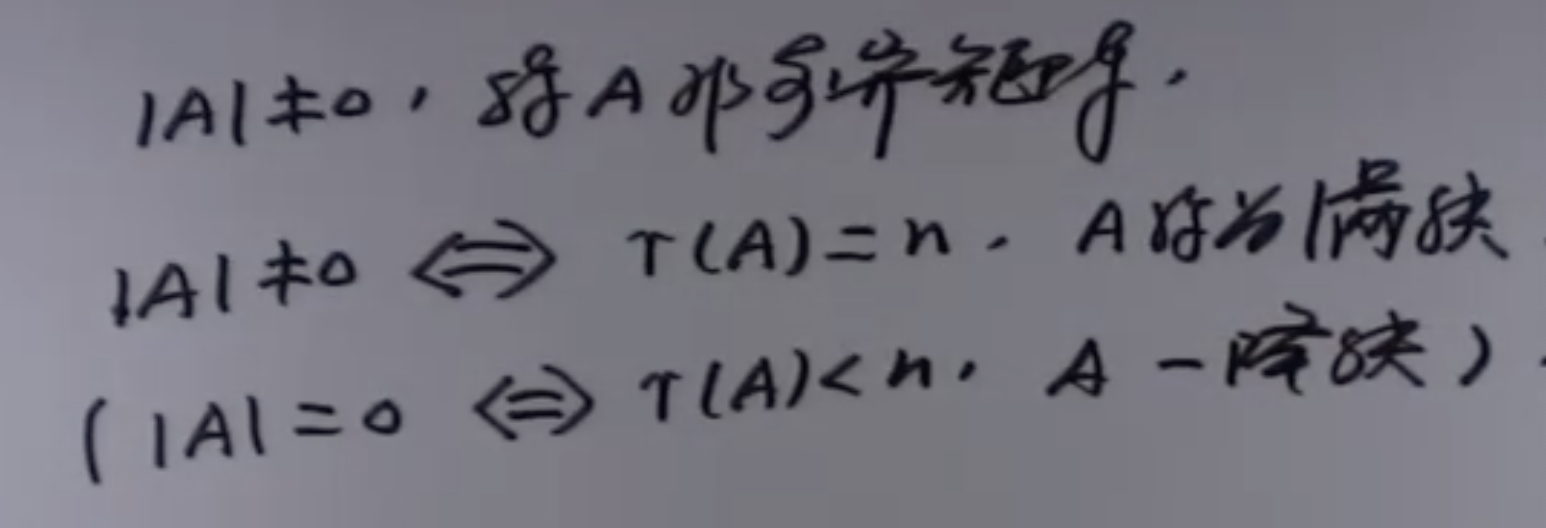 |A|≠0,称A非奇异矩阵.
|A|≠0 ⟺ r(A)=n. A称为满秩
(|A|=0 ⟺ r(A)<n. A-降秩).